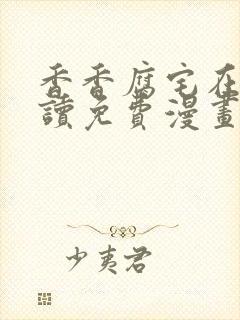 香香腐宅在
讀免費漫畫
少夷君